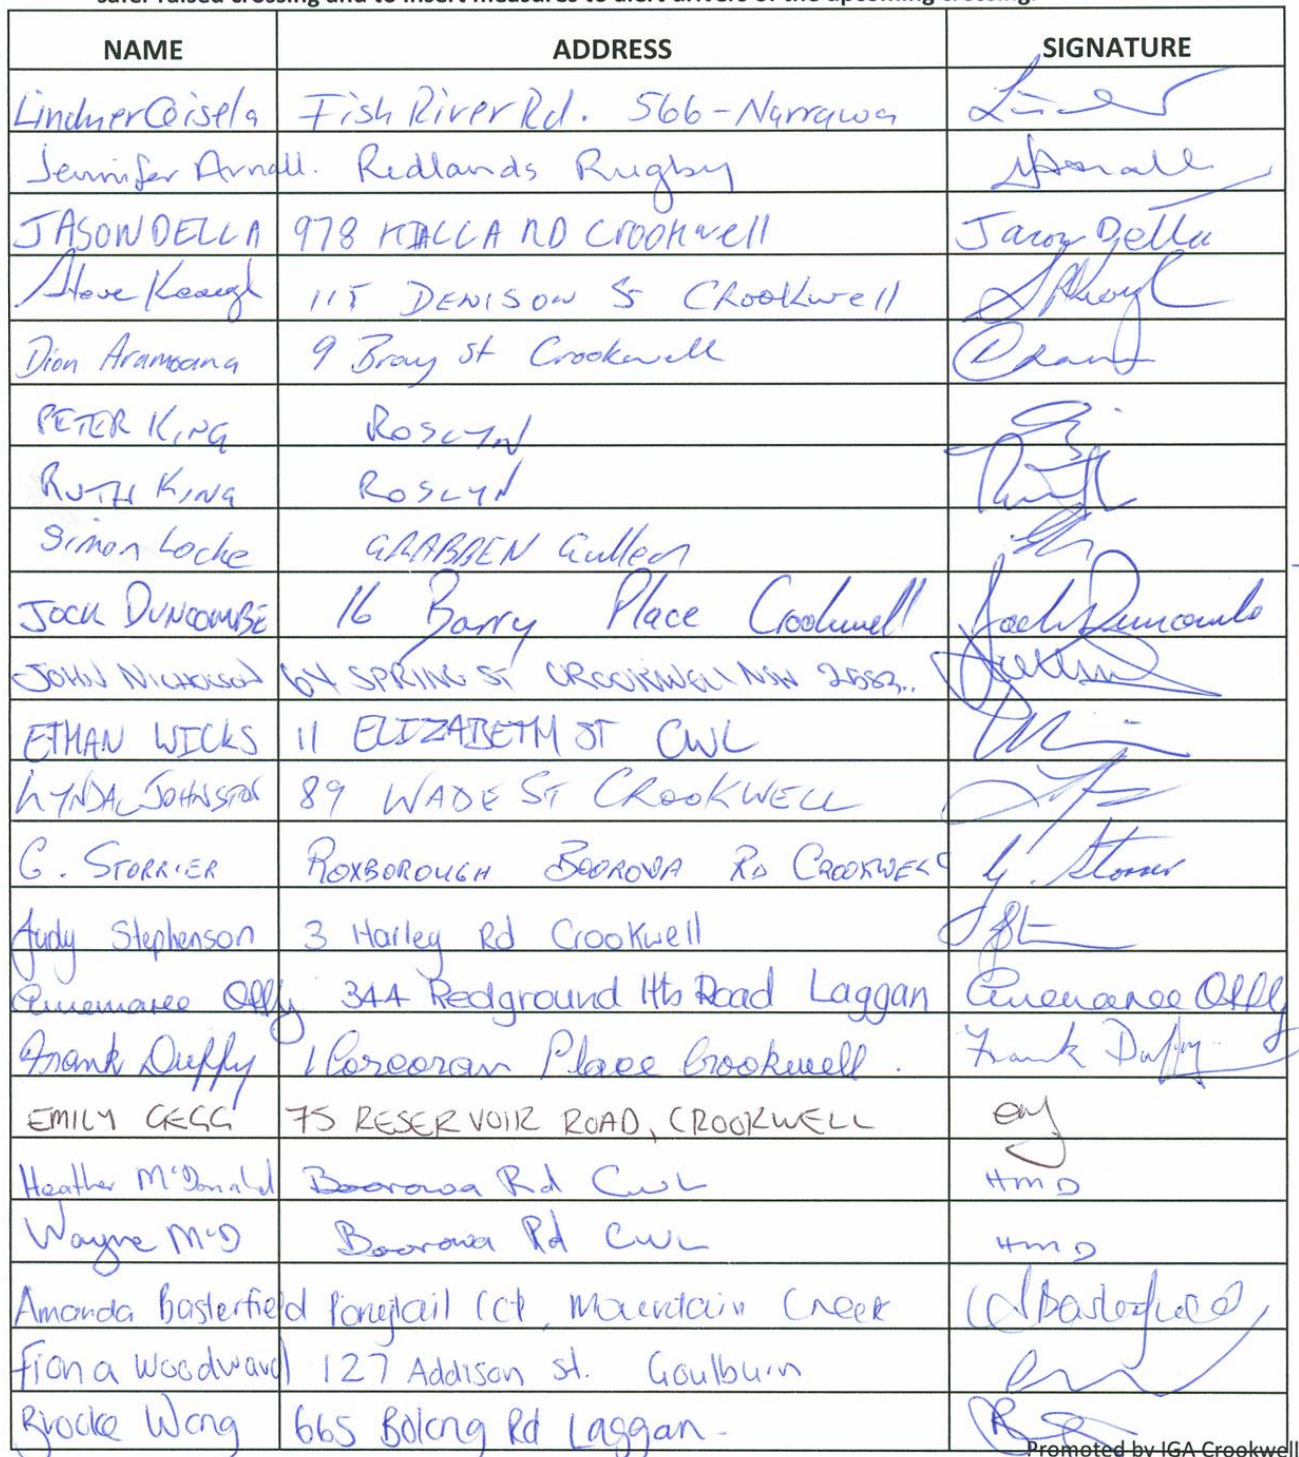 safer raised crossing and to insert measures to alert drivers of the upcoming crossing.
NAME ADDRESS SIGNATURE
Lindner Geisela Fish River Rd. 566-Narrawa
Jennifer Arnall. Redlands Rugby
JASON DELLA 978 KIALLA RD Crookwell Jason Della
Steve Keough 115 DENISON St CRookwell
Dion Aramoana 9 Bray st Crookwell
PETER KING ROSLYN
RUTH KING ROSLYN
Simon Locke GRABBEN Gullen
JOCK DUNCOMBE 16 Barry Place Crookwell Jock Duncombe
JOHN NICHOLSON 64 SPRING ST CROOKWELL NSW 2583..
ETHAN WICKS 11 ELIZABETH ST CWL
LYNDAL JOHNSTON 89 WADE ST CROOKWELL
G. STORRIER ROXBOROUGH BOOROWA RD CROOKWELL G. Storrier
Judy Stephenson 3 Harley Rd Crookwell
Annemaree Offy 344 Redground Hts Road Laggan Annemaree Offy
Frank Duffy 1 Corcoran Place Crookwell. Frank Duffy
EMILY GEGG 75 RESERVOIR ROAD, CROOKWELL
Heather McDonald Boorowa Rd CWL HMD
Wayne McD Boorowa Rd CWL HMD
Amanda Basterfield Ponytail Cct, Mountain Creek
Fiona Woodward 127 Addison st. Goulburn
Brooke Wong 665 Bolong Rd Laggan.
Promoted by IGA Crookwell